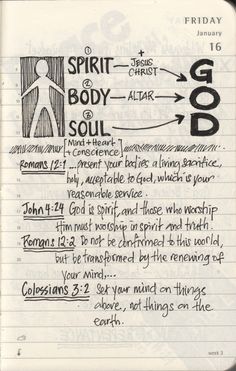 FRIDAY
January
16
① SPIRIT + JESUS CHRIST
② BODY ALTAR
③ SOUL
GOD
[Mind + Heart
+ Conscience]
Romans 12:1 ...present your bodies a living sacrifice,
holy, acceptable to God, which is your
reasonable service.
John 4:24 God is spirit, and those who worship
Him must worship in spirit and truth.
Romans 12:2 Do not be confirmed to this world,
but be transformed by the renewing of
your Mind,...
Colossians 3:2 Set your mind on things
above, not things on the
earth.
week 3